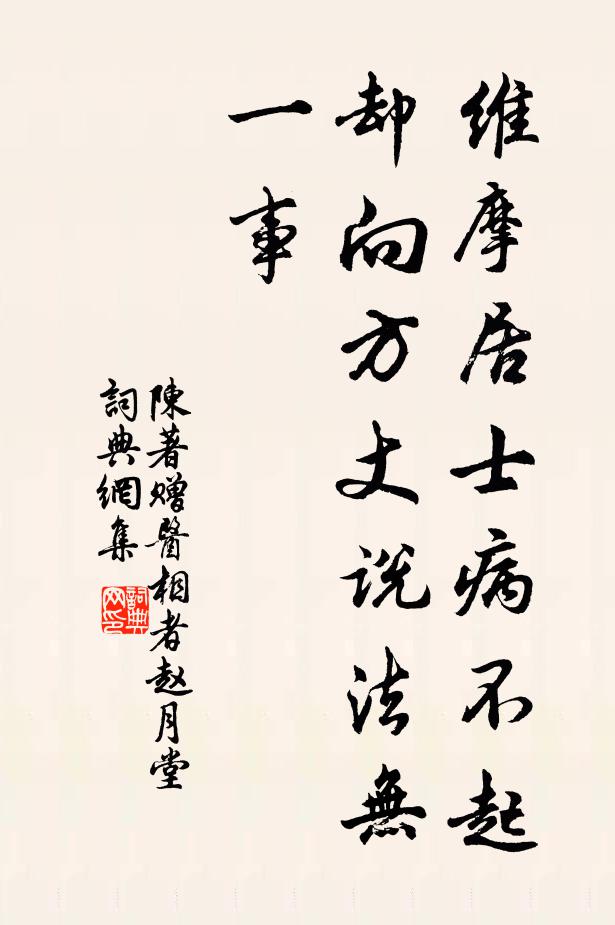 維摩居士病不起
却向方丈説法無
一事
陳著赠醫相者赵月堂
詞典網集
詞典网印